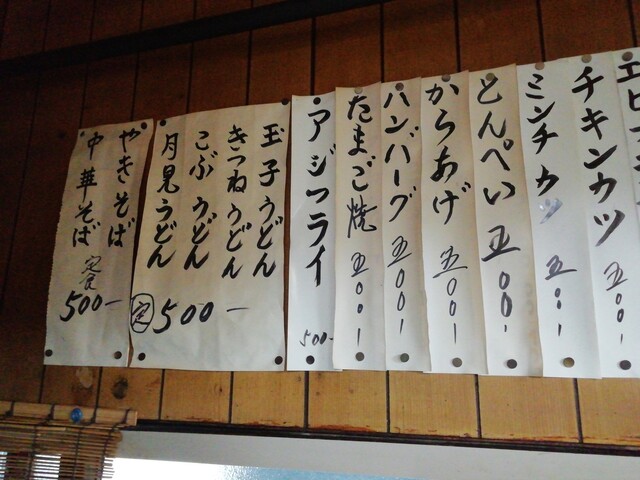 エビフ
チキンカツ
五〇〇
ミンチカツ
五〇〇
とんぺい
五〇〇
からあげ
五〇〇
ハンバーグ
五〇〇
たまご焼
五〇〇
アジフライ
500-
玉子うどん
きつねうどん
こぶうどん
月見うどん
定 500-
やきそば
中華そば
定食
500-